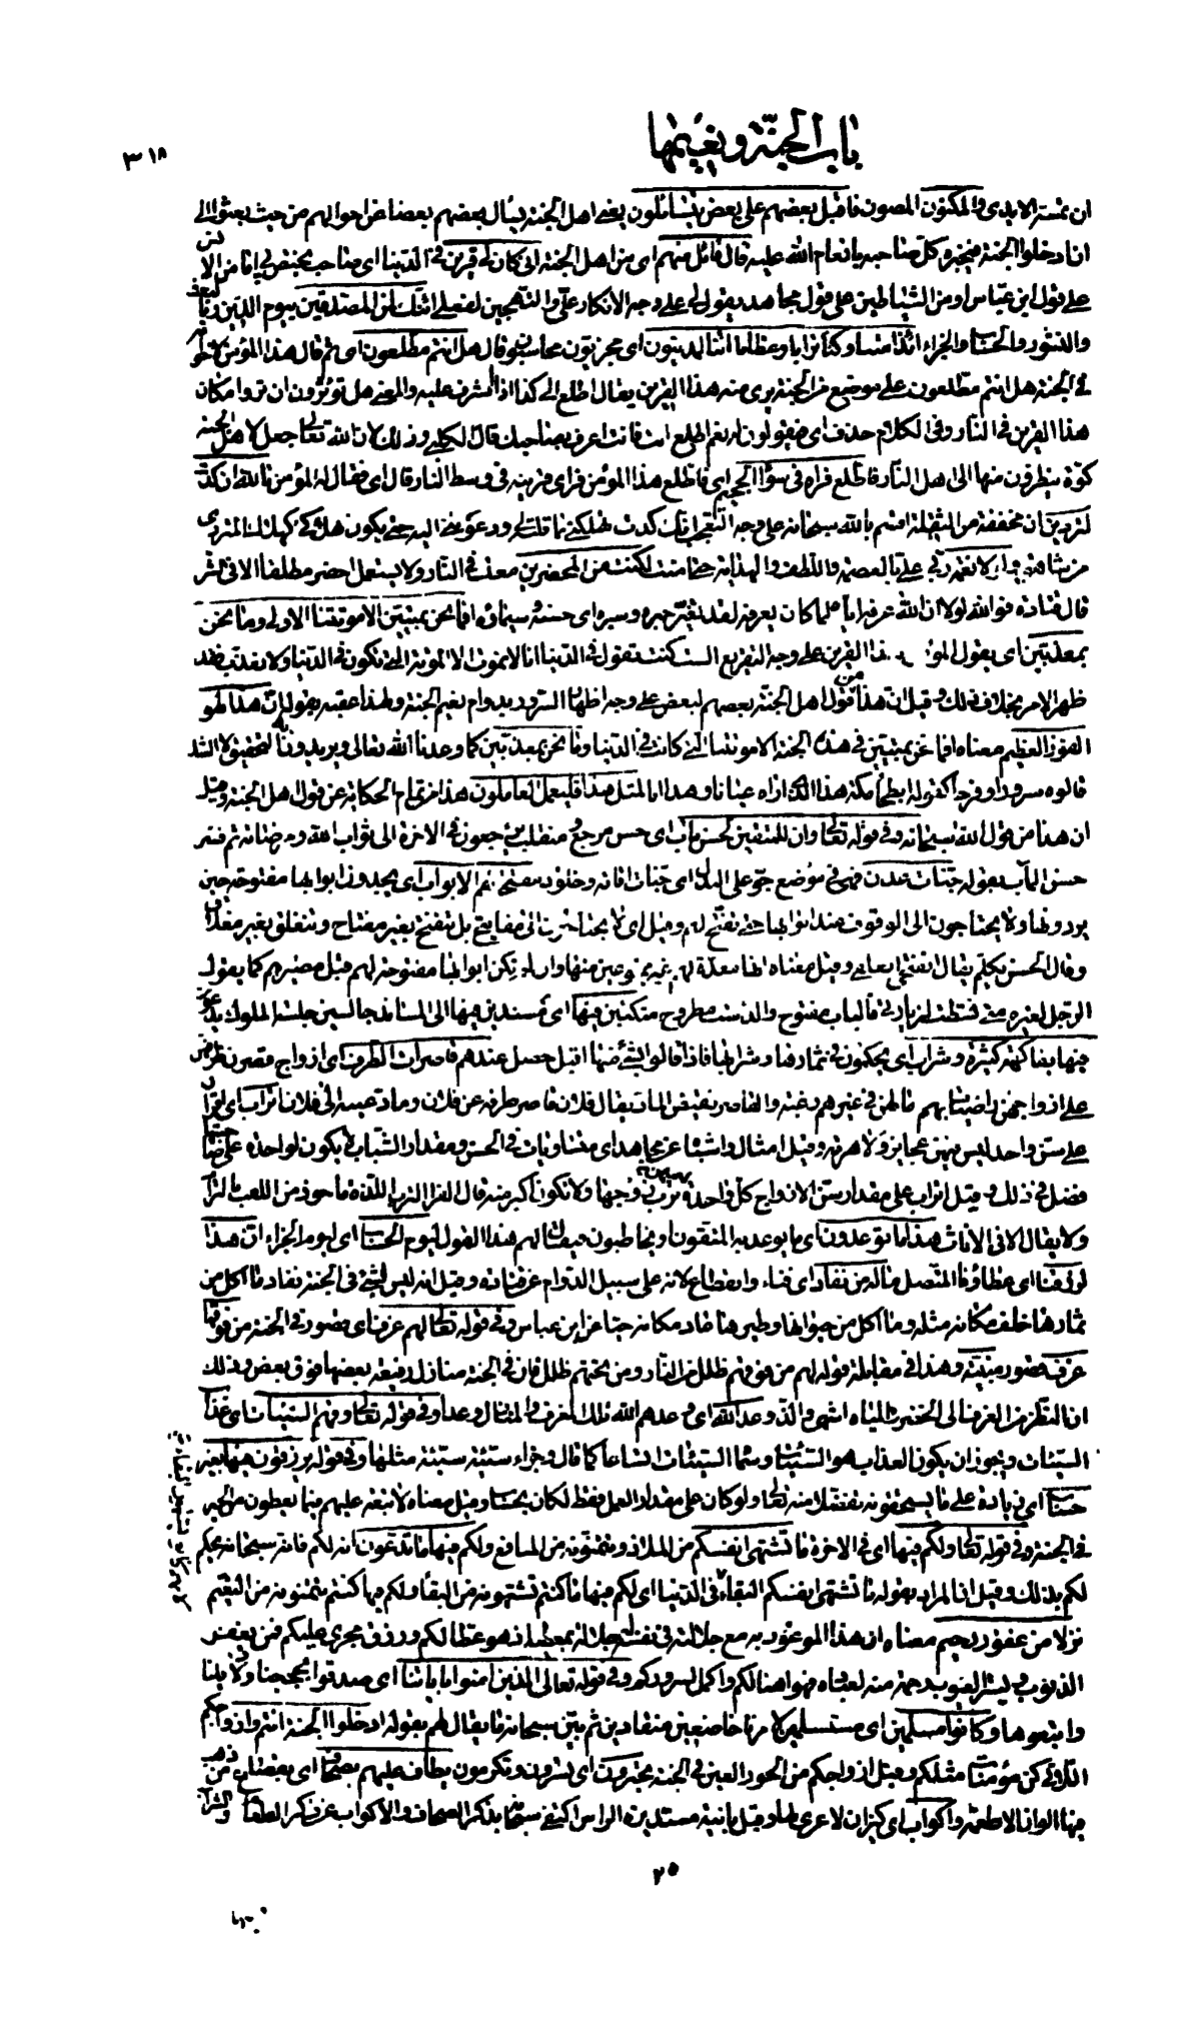 باب الجنة ونعيمها
٣١٨
ان تمسه الايدى والمكنون المصون فاقبل بعضهم على بعض يتساءلون يعنى اهل الجنة يسأل بعضهم بعضا عن احوالهم من حيث بعثوا الى
ان ادخلوا الجنة فيخبر كل صاحبه بانعام الله عليه قال قائل منهم اى من اهل الجنة انى كان لى قرين فى الدنيا اى صاحب يختص بى اما من الانس
على قول ابن عباس او من الشياطين على قول مجاهد يقول لى على وجه الانكار على والتهجين لفعلى ائنك لمن المصدقين بيوم الدين وبالبعث
والنشور والحساب والجزاء ائذا متنا وكنا ترابا وعظاما ائنا لمدينون اى مجزيون محاسبون قال هل انتم مطلعون اى ثم قال هذا المؤمن
فى الجنة هل انتم مطلعون على موضع من الجنة يرى منه هذا القرين يقال اطلع الى كذا اذا اشرف عليه والمعنى هل تؤثرون ان تروا مكان
هذا القرين فى النار وفى الكلام حذف اى فيقولون له نعم اطلع انت فانت اعرف بصاحبك قال الكلبى وذلك لان الله تعالى جعل لاهل الجنة
كوة ينظرون منها الى اهل النار فاطلع فراه فى سواء الجحيم اى فاطلع هذا المؤمن فراى قرينه فى وسط النار قال اى فقال له المؤمن تالله ان كدت
لتردين ان مخففة من الثقيلة اقسم بالله سبحانه على وجه التعجب انك كدت تهلكنى بما قلته لى ودعوتنى اليه حتى يكون هلاكى كهلاك المتردى
من شاهق ولولا نعمة ربى على بالعصمة واللطف والهداية حتى امنت لكنت من المحضرين معك فى النار ولا يستعمل احضر مطلقا الا فى الشر
قال قتادة فوالله لولا ان الله عرفه اياه لما كان يعرفه لقد تغير حبره وسبره اى حسنه وسيماؤه افما نحن بميتين الا موتتنا الاولى وما نحن
بمعذبين اى يقول المؤمن لهذا القرين على وجه التقريع الست كنت تقول فى الدنيا انا لا نموت الا الموتة التى تكون فى الدنيا ولا نعذب فقد
ظهر الامر بخلاف ذلك وقيل ان هذا من قول اهل الجنة بعضهم لبعض على وجه اظهار السرور بدوام نعيم الجنة ولهذا عقبه بقوله ان هذا لهو
الفوز العظيم معناه افما نحن بميتين فى هذه الجنة الا موتتنا التى كانت فى الدنيا وما نحن بمعذبين كما وعدنا الله تعالى ويريدون به التحقيق لا الشك
قالوه سرورا وفرحا كقوله ابطحاء مكة هذا الذى اراه عيانا وهذا انا لمثل هذا فليعمل العاملون هذا من تمام الحكاية عن قول اهل الجنة وقيل
ان هذا من قول الله سبحانه وفى قوله تعالى وان للمتقين لحسن ماب اى حسن مرجع ومنقلب يرجعون فى الاخرة الى ثواب الله ومرضاته ثم فسر
حسن المآب بقوله جنات عدن فهى فى موضع جر على البدل اى جنات اقامة وخلود مفتحة لهم الابواب اى يجدون ابوابها مفتوحة حين
يردونها ولا يحتاجون الى الوقوف عند ابوابها حتى تفتح لهم وقيل اى لا يحتاجون الى مفاتيح بل تنفتح بغير مفتاح وتنغلق بغير مغلاق
وقال الحسن يكلم يقال انفتحى انغلقى وقيل معناه انها معدة لهم غير ممنوعين منها وان لم تكن ابوابها مفتوحة لهم قبل مصيرهم كما يقول
الرجل لغيره متى نشطت لزيارتى فالباب مفتوح والدست مطروح متكئين فيها اى مستندين فيها الى المساند جالسين جلسة الملوك يدعون
فيها بفاكهة كثيرة وشراب اى يحكمون فى ثمارها وشرابها فاذا قالوا لشىء منها اقبل حصل عندهم وعندهم قاصرات الطرف اى ازواج قصرن طرفهن
على ازواجهن راضيات بهم ما لهن فى غيرهم رغبة والقاصر نقيض الماد يقال فلان قاصر طرفه عن فلان وماد عينه الى فلان اتراب اى اقران
على سن واحد ليس فيهن عجائز ولا هرمة وقيل امثال واشباه عن مجاهد اى متساويات فى الحسن ومقدار الشباب لا يكون لواحدة على صاحبتها
فضل فى ذلك وقيل اتراب على مقدار سن الازواج كل واحدة منهن ترب زوجها ولا تكون اكبر منه قال الفراء الترب اللدة ماخوذ من اللعب بالتراب
ولا يقال الا فى الاناث هذا ما توعدون اى ما يوعد به المتقون او يخاطبون فيقال لهم هذا القول ليوم الحساب اى ليوم الجزاء ان هذا
لرزقنا اى عطاؤنا المتصل ماله من نفاد اى فناء وانقطاع لانه على سبيل الدوام عن قتادة وقيل انه ليس لشىء فى الجنة نفاد ما اكل من
ثمارها خلف مكانه مثله وما اكل من حيوانها وطيرها عاد مكانه حيا عن ابن عباس وفى قوله تعالى لهم غرف اى قصور فى الجنة من فوقها
غرف قصور مبنية وهذا فى مقابلة قوله لهم من فوقهم ظلل من النار ومن تحتهم ظلل فان فى الجنة منازل رفيعة بعضها فوق بعض وذلك
ان النظر من الغرف الى الخضر والمياه اشهى والذ وعد الله اى وعدهم الله تلك الغرف والمنازل وعدا وفى قوله تعالى وقهم السيئات اى عذاب
السيئات ويجوز ان يكون العذاب هو السيئات وسماه السيئات اتساعا كما قال وجزاء سيئة سيئة مثلها وفى قوله يرزقون فيها بغير
حساب اى زيادة على ما يستحقونه تفضلا منه تعالى ولو كان على مقدار العمل فقط لكان بحساب وقيل معناه لا تبعة عليهم فيما يعطون من الخير
فى الجنة وفى قوله تعالى ولكم فيها اى فى الاخرة ما تشتهى انفسكم من الملاذ وتتمنونه من المنافع ولكم فيها ما تدعون انه لكم فانه سبحانه يحكم
لكم بذلك وقيل ان المراد بقوله ما تشتهى انفسكم البقاء فى الدنيا اى لكم فيها ما كنتم تشتهونه من البقاء ولكم فيها ما كنتم تتمنونه من النعيم
نزلا من غفور رحيم معناه ان هذا الموعود به مع جلالته فى نفسه جلالة بمعطيه اذ هو عطاء لكم ورزق مجرى عليكم ممن يغفر
الذنوب ويستر العيوب رحمة منه لعباده فهو اهنا لكم واكمل لسروركم وفى قوله تعالى الذين امنوا باياتنا اى صدقوا بحججنا ودلائلنا
واتبعوها وكانوا مسلمين اى مستسلمين لامرنا خاضعين منقادين ثم بين سبحانه ما يقال لهم بقوله ادخلوا الجنة انتم وازواجكم
اللاتى كن مؤمنات مثلكم وقيل ازواجكم من الحور العين فى الجنة تحبرون اى تسرون وتكرمون يطاف عليهم بصحاف اى بقصاع من ذهب
فيها الوان الاطعمة واكواب اى كيزان لا عرى لها وقيل بانية مستديرة الراس اكتفى سبحانه بذكر الصحاف والاكواب عن ذكر الطعام والشراب
٢٥